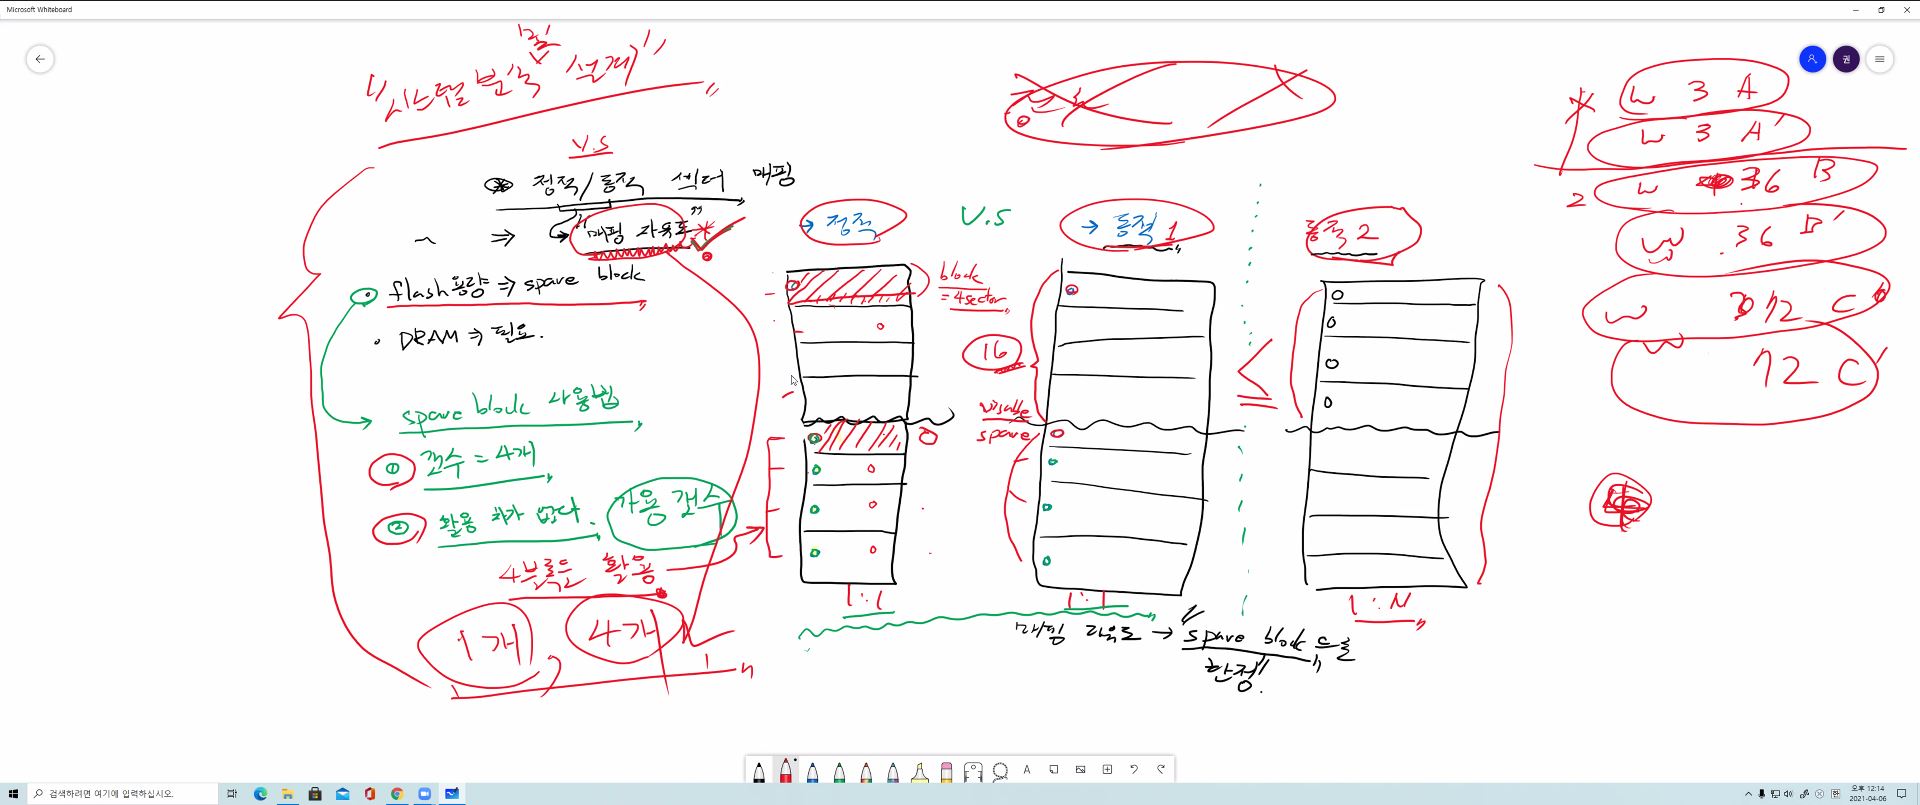 Microsoft Whiteboard
및
"시스템 분석 설계"
V.S
정적/동적 섹터 매핑
~ ⇒ → "매핑 자유도"
flash용량 ⇒ spare block
• DRAM ⇒ 필요.
spare block 사용법
① 갯수 = 4개
② 활용 차가 없다.
가용 갯수
4블록 활용
1개, 4개
→ 정적
V.S
→ 동적 1
동적 2
block
= 4sector
16
visable
spare
≤
1:1
1:1
1:N
매핑 자유도 → "spare block 으로
한정"
W 3 A
W 3 A'
2
W 36 B
W 36 B'
W 72 C
W 72 C'
권
검색하려면 여기에 입력하십시오.
오후 12:14
2021-04-06